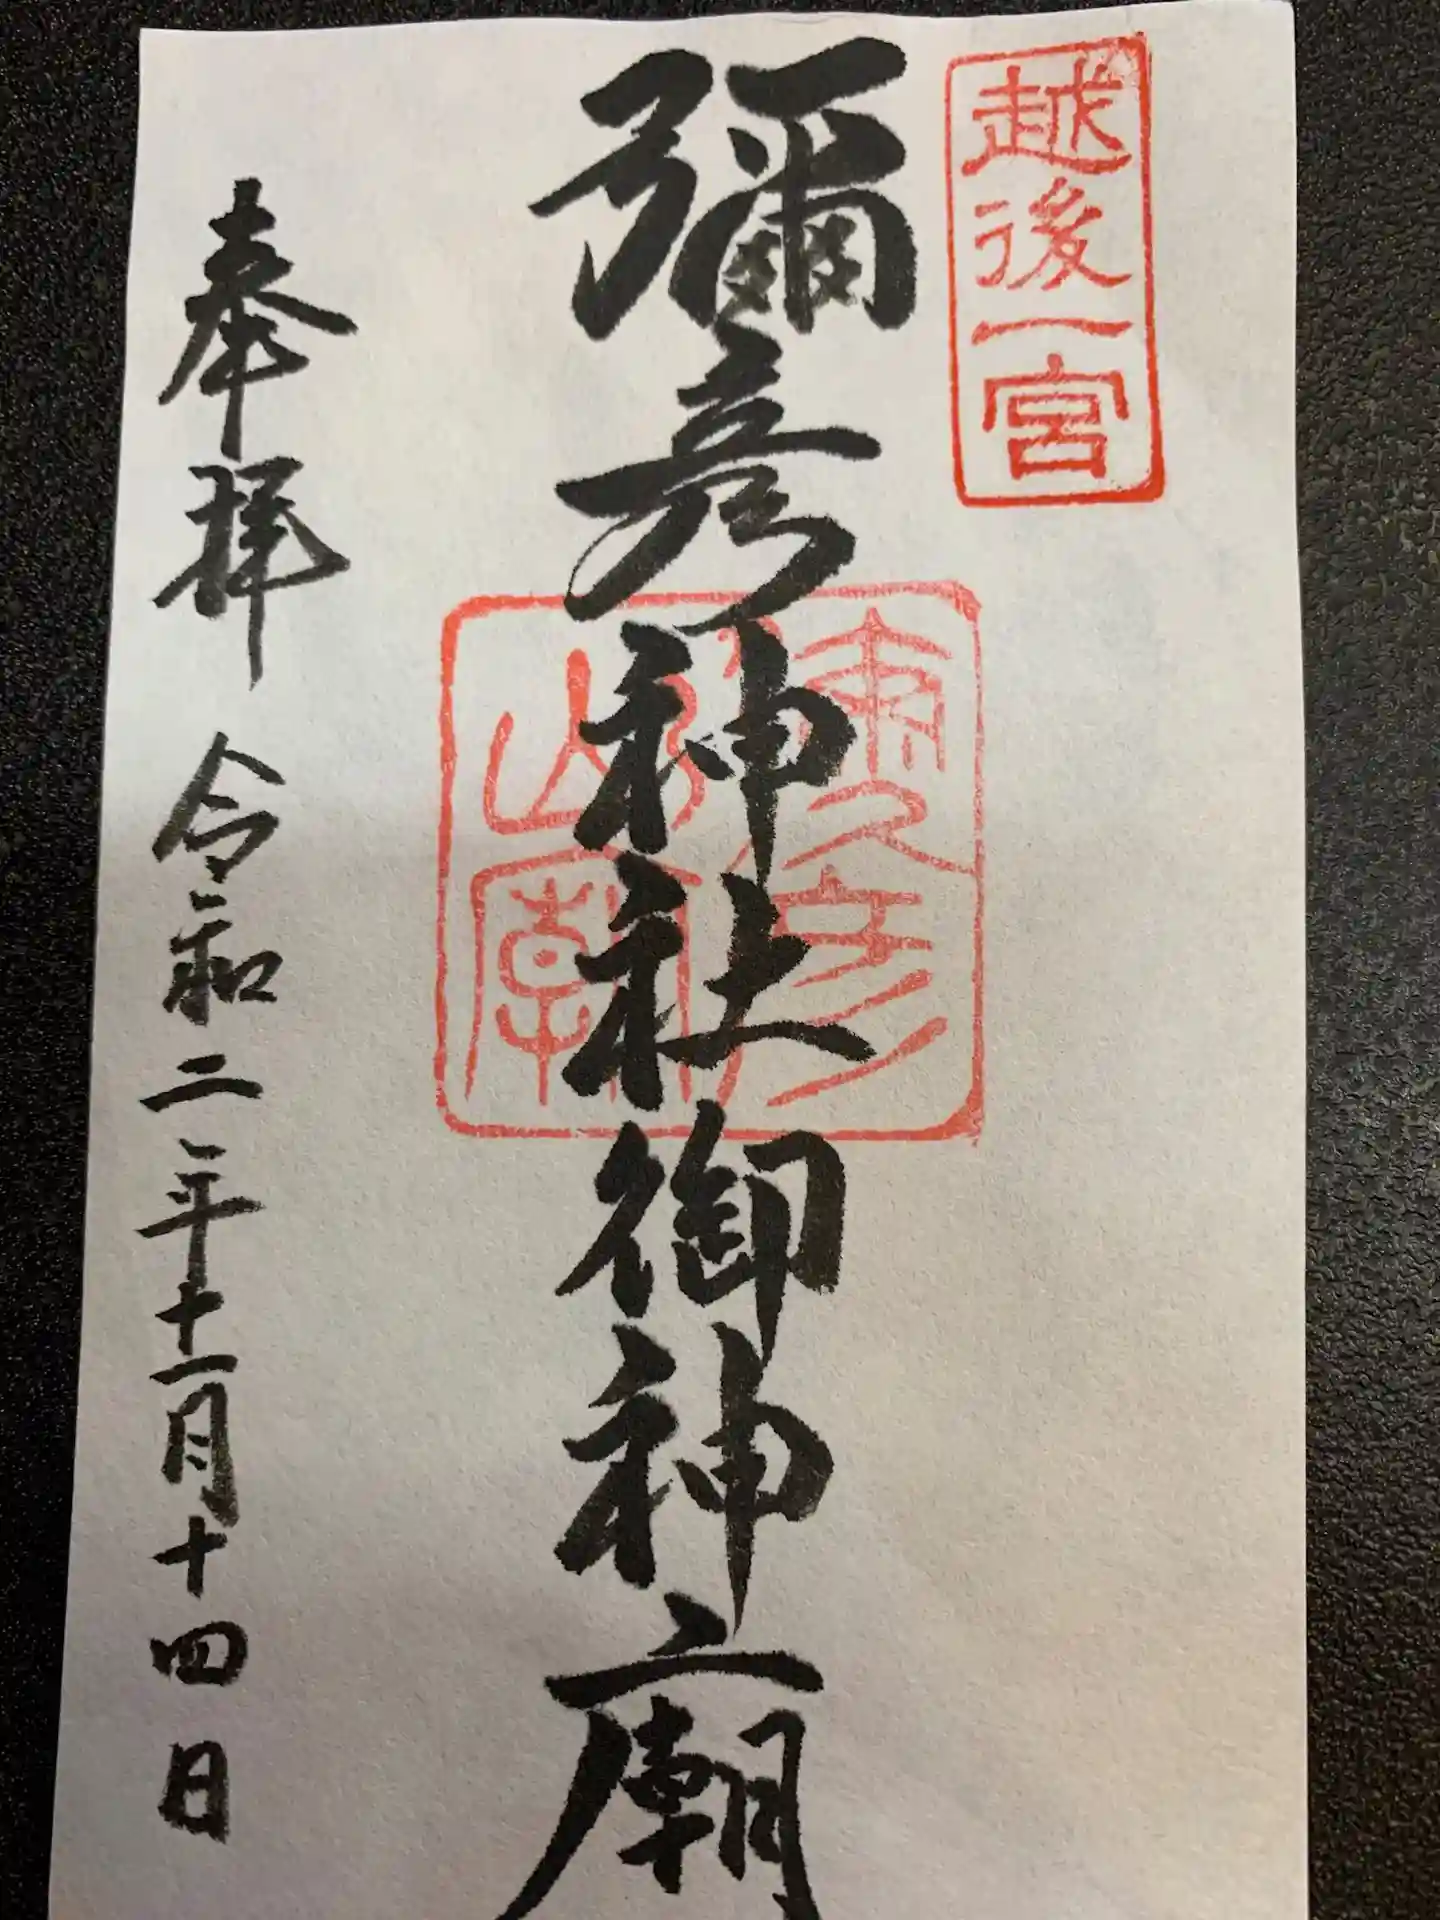 越後一宮
彌彦神社御神廟
奉拝 令和二年十一月十四日